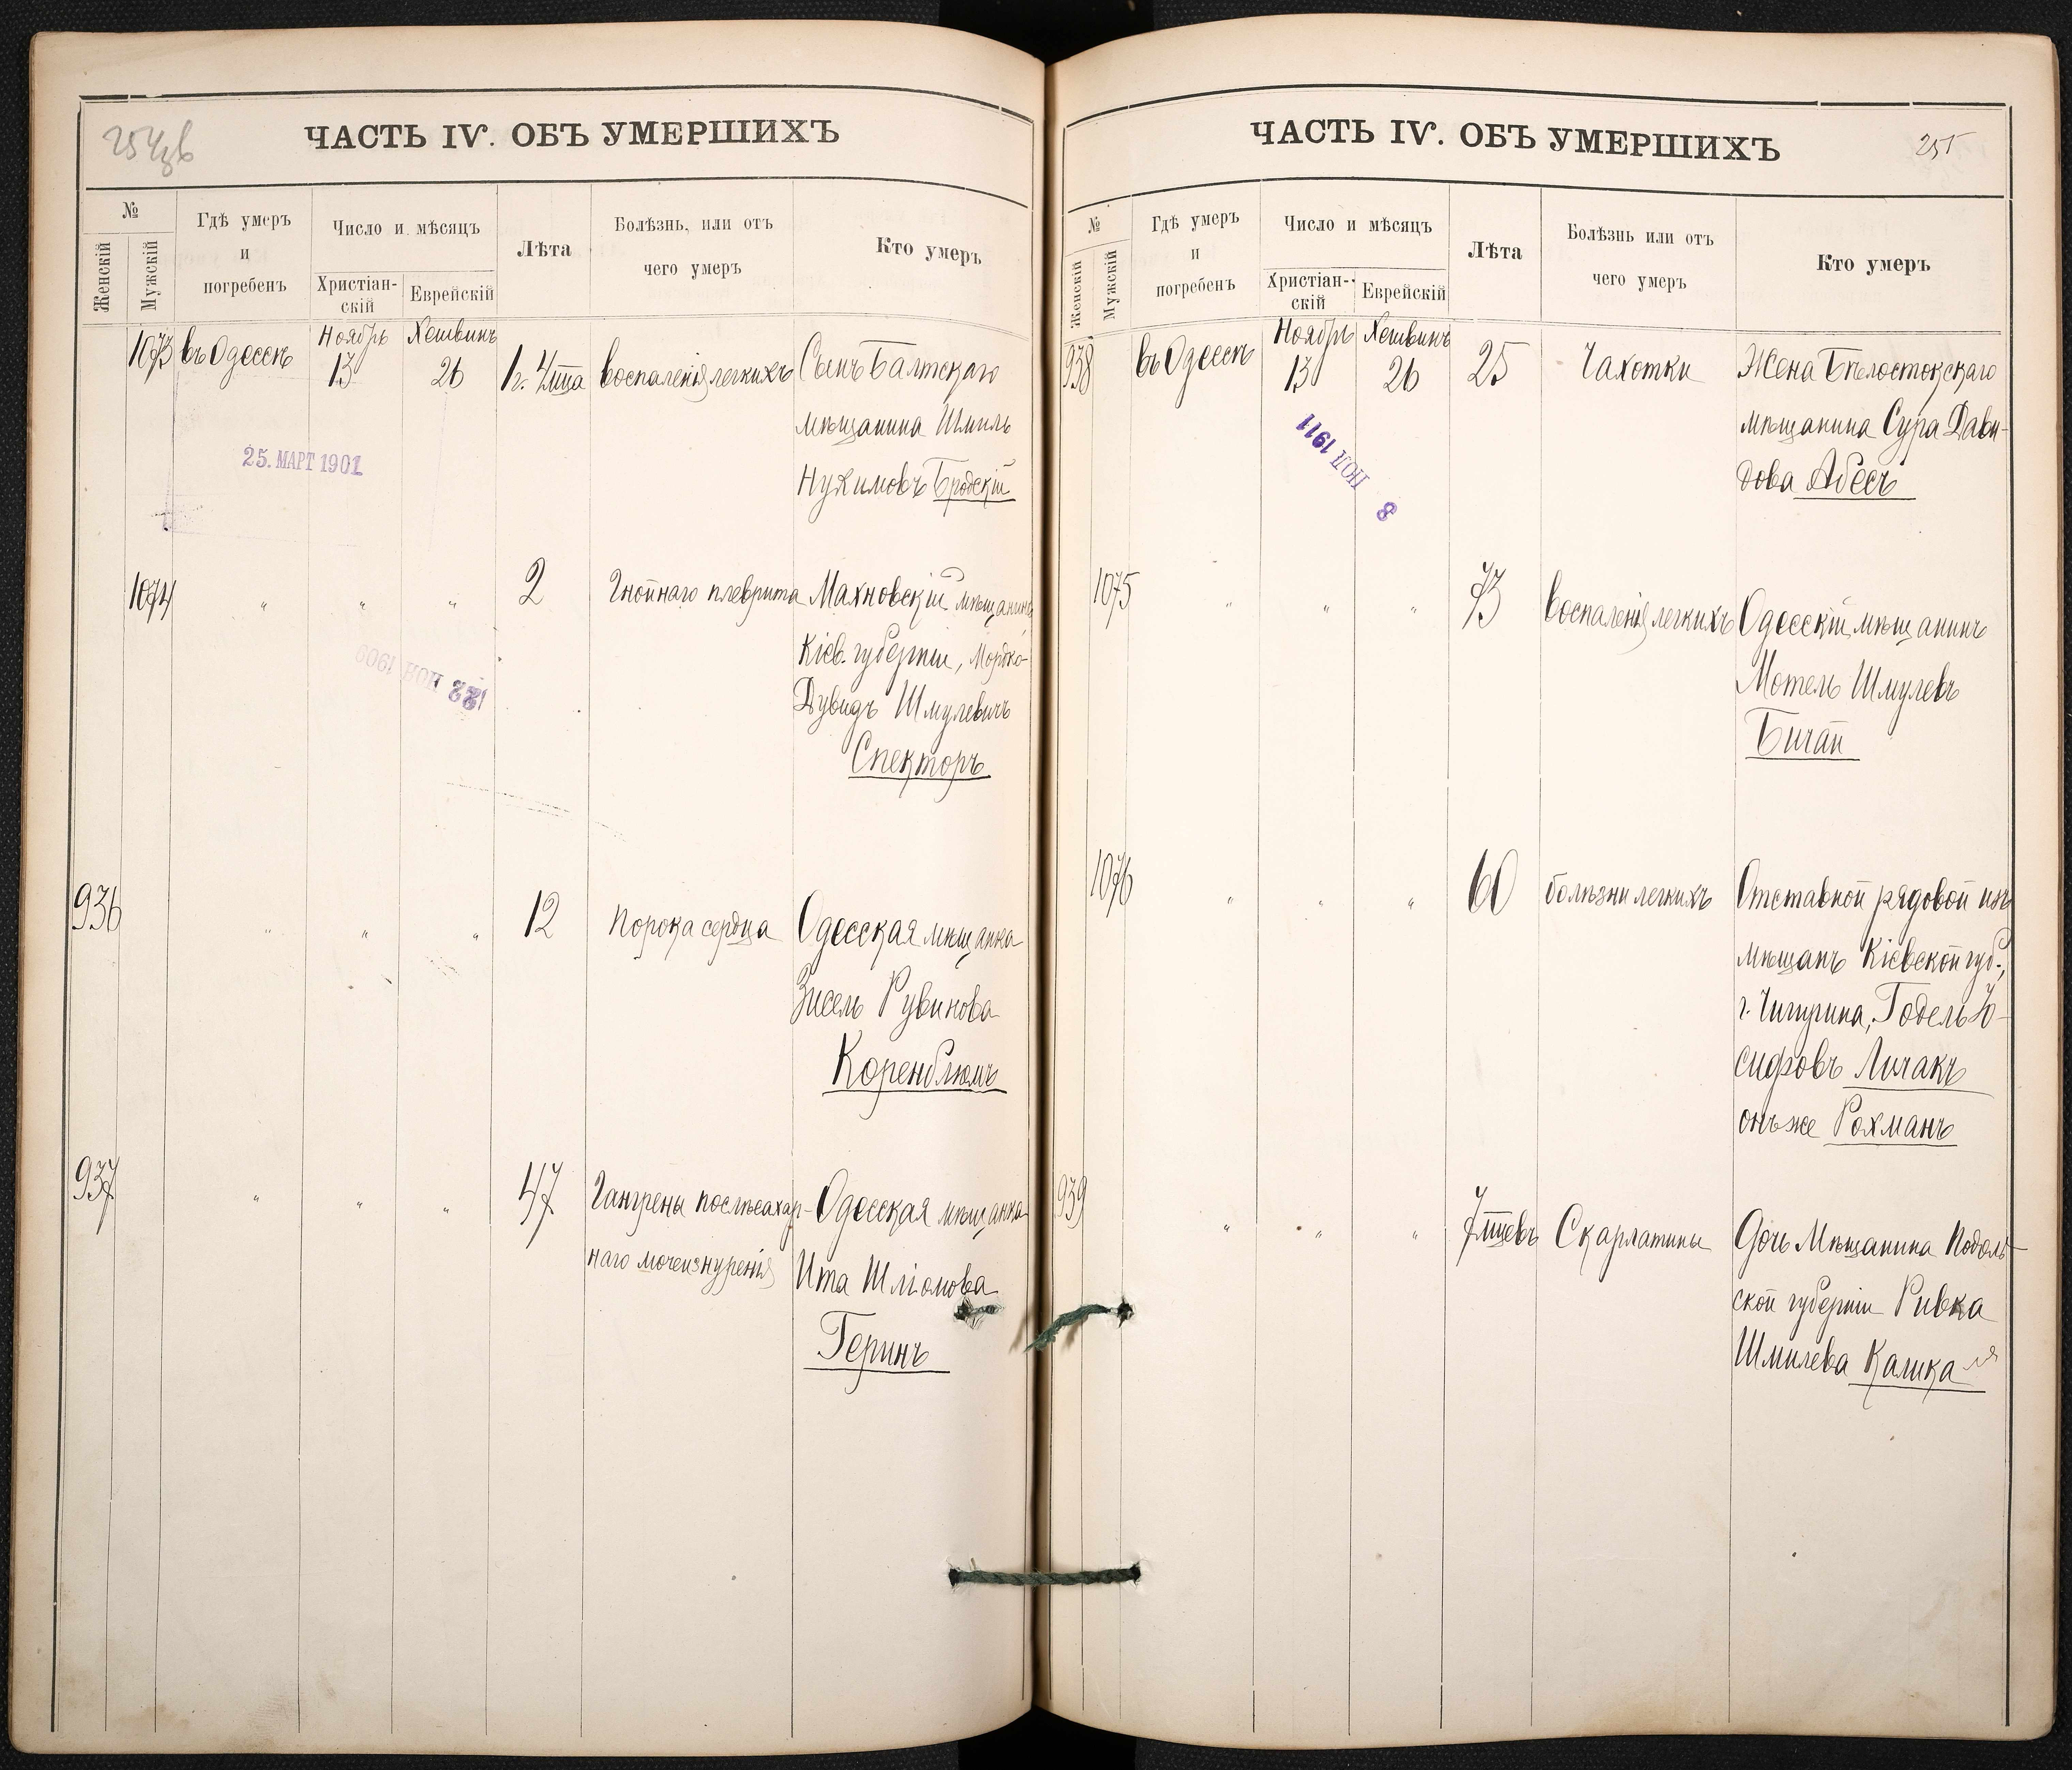 254 об
ЧАСТЬ IV. ОБЪ УМЕРШИХЪ
№
Женскій
Мужскій
Гдѣ умеръ
и
погребенъ
Число и мѣсяцъ
Христіан-
скій
Еврейскій
Лѣта
Болѣзнь, или отъ
чего умеръ
Кто умеръ
Ноябрь Хешвинъ
1073 въ Одессѣ 13 26 1 г. 4 мца воспаленія легкихъ Сынъ Балтскаго
мѣщанина Шмиль
Нухимовъ Бродскій
25. МАРТ 1901
1074 " " " 2 Гнойнаго плеврита Махновскій мѣщанинъ
Кіев. губерніи, Мордко-
Дувидъ Шмулевичъ
Спекторъ
22 НОЯ 1909
936 " " " 12 Порока сердца Одесская мѣщанка
Зисель Рувинова
Коренблюмъ
937 " " " 47 Гангрены послѣ сахар- Одесская мѣщанка
наго мочеизнуренія Ита Шліомова
Геринъ
ЧАСТЬ IV. ОБЪ УМЕРШИХЪ
255
№
Женскій
Мужскій
Гдѣ умеръ
и
погребенъ
Число и мѣсяцъ
Христіан-
скій
Еврейскій
Лѣта
Болѣзнь или отъ
чего умеръ
Кто умеръ
Ноябрь Хешвинъ
938 въ Одессѣ 13 26 25 Чахотки Жена Бѣлостокскаго
мѣщанина Сура Дави-
дова Абесъ
8 1911
1075 " " " 73 воспаленія легкихъ Одесскій мѣщанинъ
Мотель Шмулевъ
Бичай
1076 " " " 60 болѣзни легкихъ Отставной рядовой изъ
мѣщанъ Кіевской губ.,
г. Чигирина, Годель Іо-
сифовъ Личакъ
онъ же Рохманъ
939 " " " 7 мцевъ Скарлатины Дочь Мѣщанина Подоль-
ской губерніи Ривка
Шмилева Калика